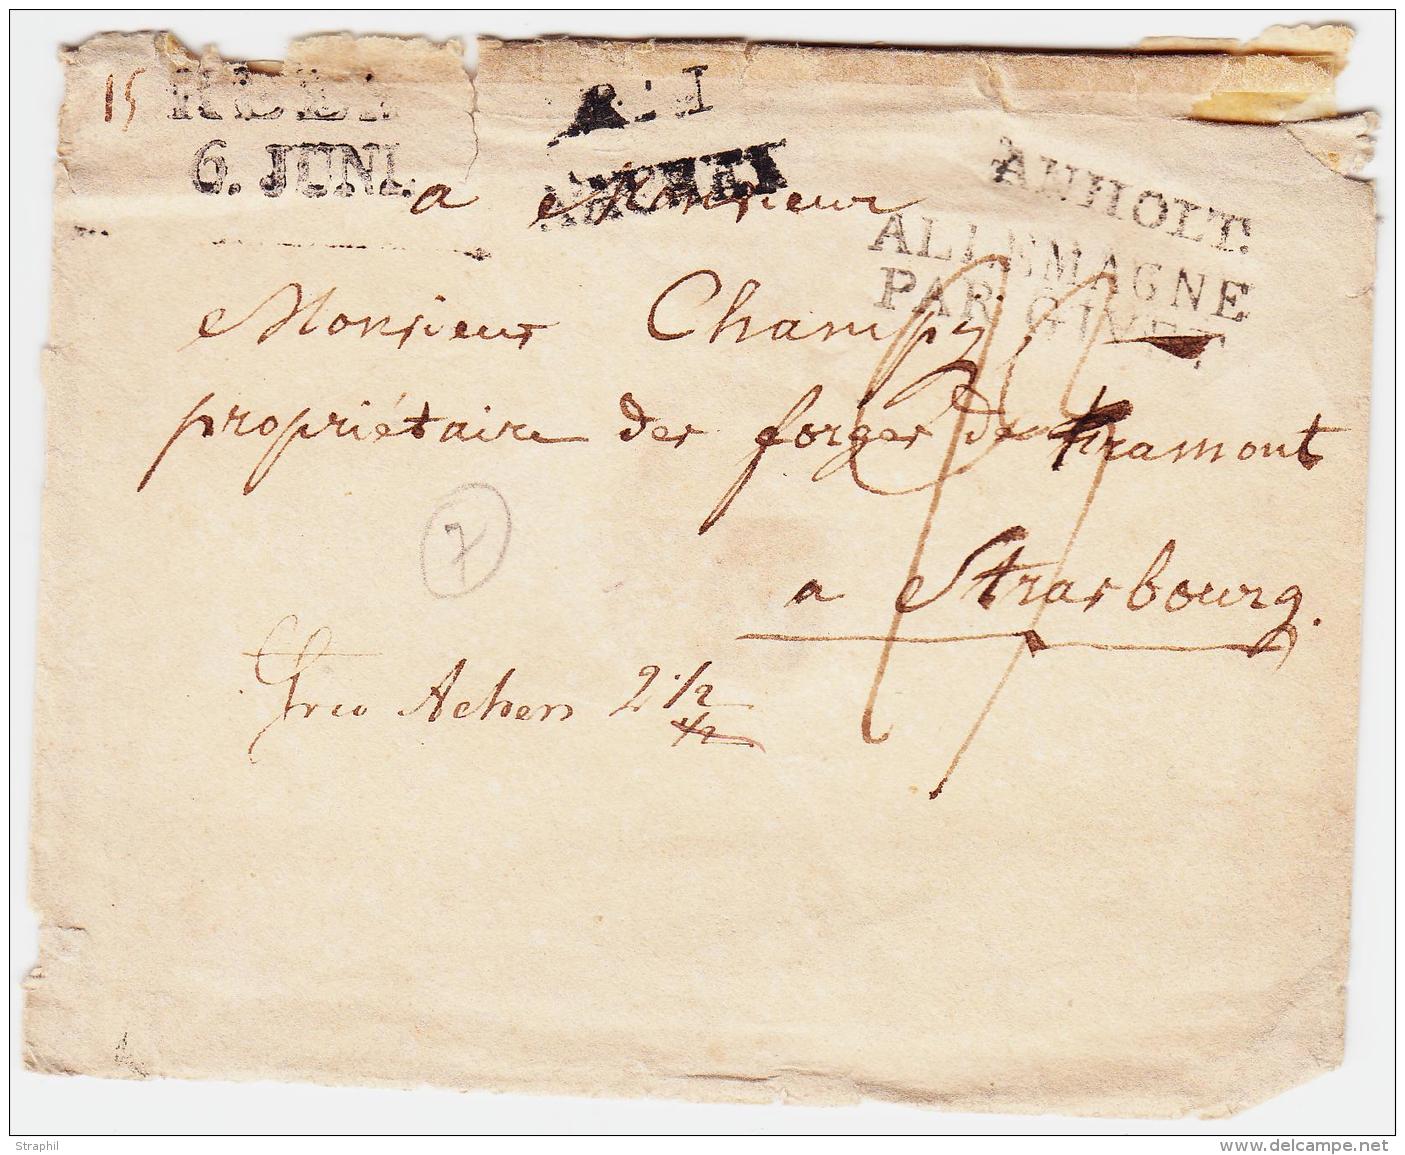 15
6. JUNI.
ANHOLT.
ALLEMAGNE
PAR GIVET
a Monsieur
Monsieur Champy,
propriétaire des forges de framont
a Strasbourg.
7
frco Achen 2 1/2
1/2
Straphil
www.delcampe.net